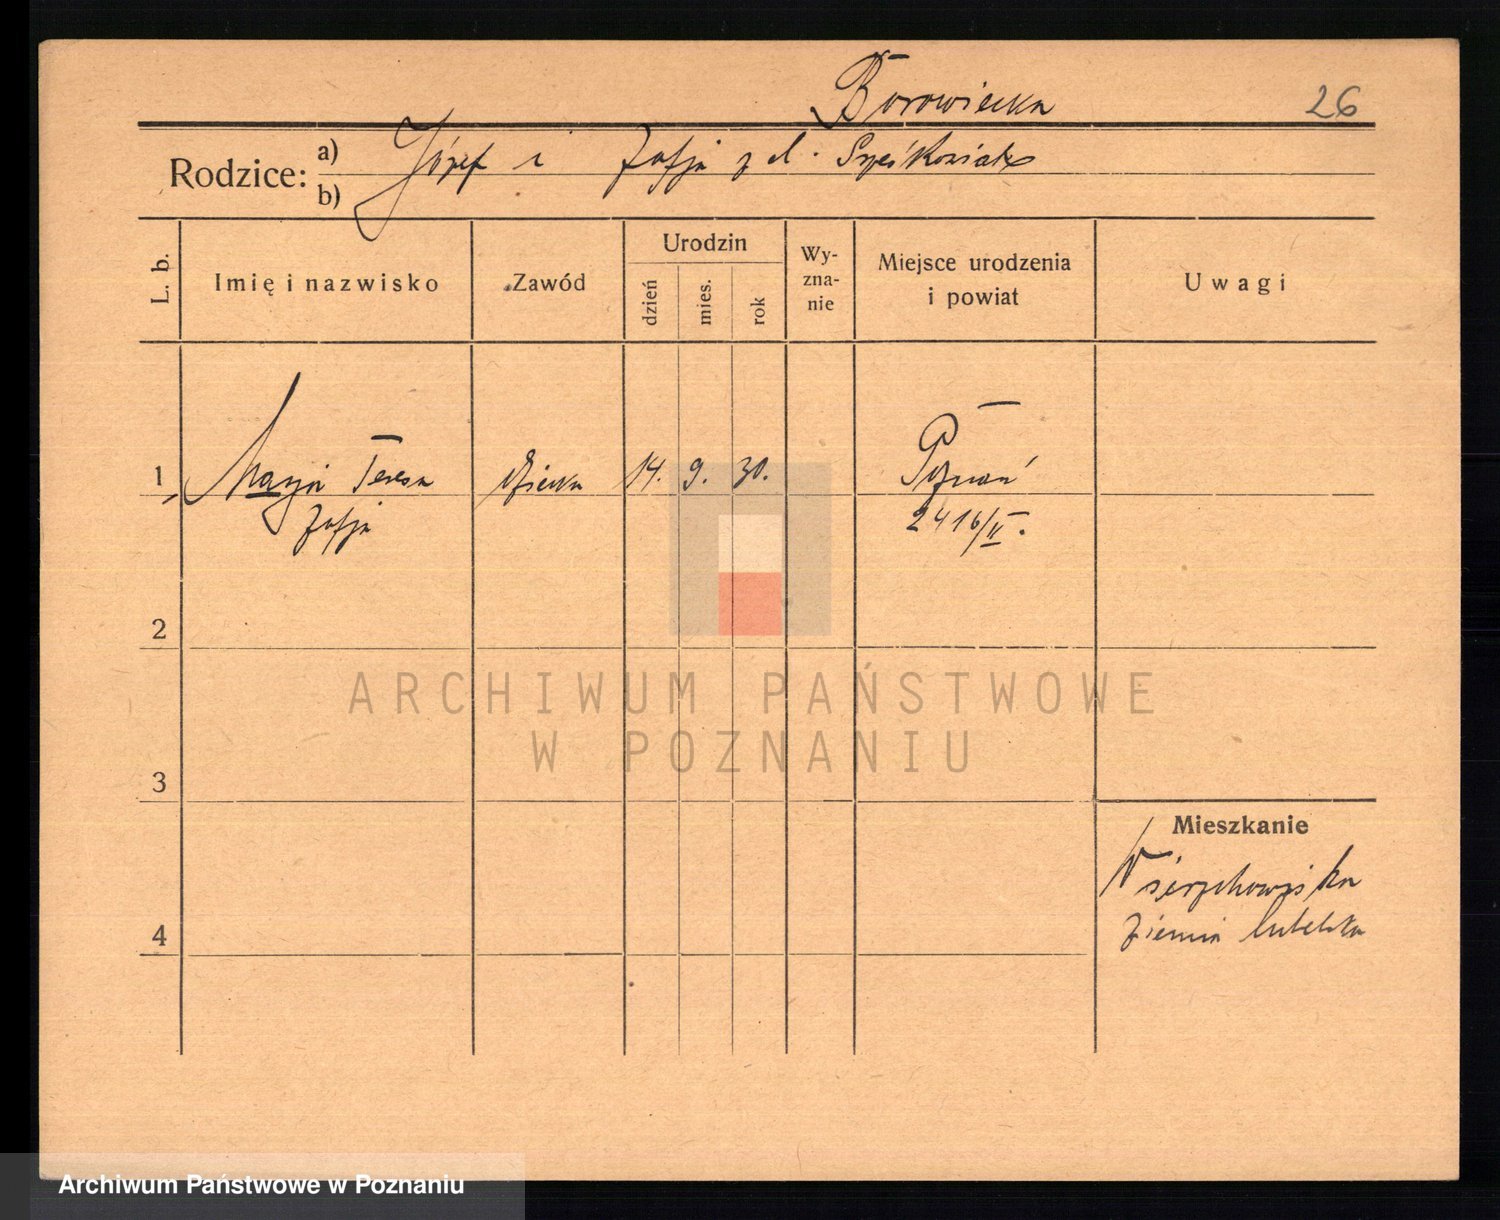 Borowiecka
26
Rodzice: a) Józef i Zofja z d.
b)
L. b.
Imię i nazwisko
Zawód
Urodzin
dzień
mies.
rok
Wy-
zna-
nie
Miejsce urodzenia
i powiat
Uwagi
1 Marja Teresa 14. 9. 30. Poznań
Zofja 2416/II.
2
ARCHIWUM PAŃSTWOWE
W POZNANIU
3
Mieszkanie
4 ziemia lubelska
Archiwum Państwowe w Poznaniu